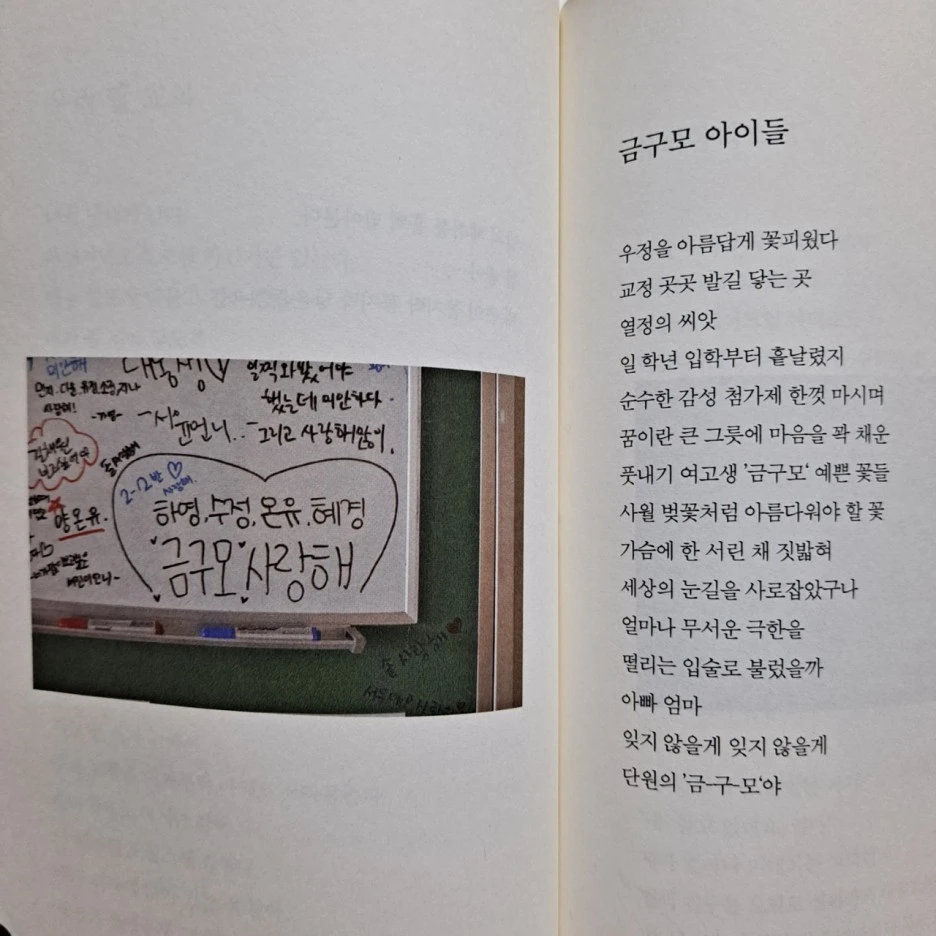 미안해
사랑해!
일찍 와 봤어야
했는데 미안하다.
그리고 사랑해 많이.
언니..
2-2반 ♡
사랑해.
양온유.
하영, 수정, 온유, 혜경
금구모 사랑해
사랑해 ♥
금구모 아이들
우정을 아름답게 꽃피웠다
교정 곳곳 발길 닿는 곳
열정의 씨앗
일 학년 입학부터 흩날렸지
순수한 감성 첨가제 한껏 마시며
꿈이란 큰 그릇에 마음을 꽉 채운
풋내기 여고생 '금구모' 예쁜 꽃들
사월 벚꽃처럼 아름다워야 할 꽃
가슴에 한 서린 채 짓밟혀
세상의 눈길을 사로잡았구나
얼마나 무서운 극한을
떨리는 입술로 불렀을까
아빠 엄마
잊지 않을게 잊지 않을게
단원의 '금-구-모'야